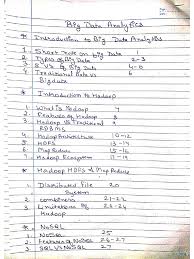 Big Data Analytics
* Introduction to Big Data Analytics
1 Short note on Big Data 1
2 Types of Big Data 2-3
3 5 V's of Big Data 4-6
4 Traditional Data vs 6
Bigdata
* Introduction to Hadoop
1 What is Hadoop 7
2 Features of Hadoop 8
3 Hadoop vs Traditional 9
RDBMS
4 Hadoop Architecture 10-12
5 HDFS 13-14
6 Map Reduce 15-
7 Hadoop Ecosystem -19
* Hadoop HDFS & Map Reduce
1 Distributed File 20
System
2 Combiners 21-22
3 Limitations of -24
Hadoop
* NoSQL
1 NoSQL 25
2 Features of NoSQL 26-27
3 SQL vs NoSQL 27